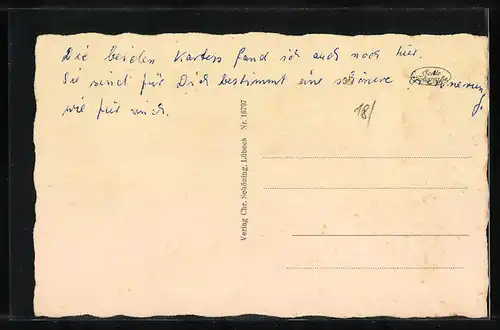 Die beiden Karten fand ich auch noch hier.
Sie sind für Dich bestimmt eine schönere Erinnerung
wie für mich.
J.
18/
Verlag Chr. Schöning, Lübeck Nr. 16797